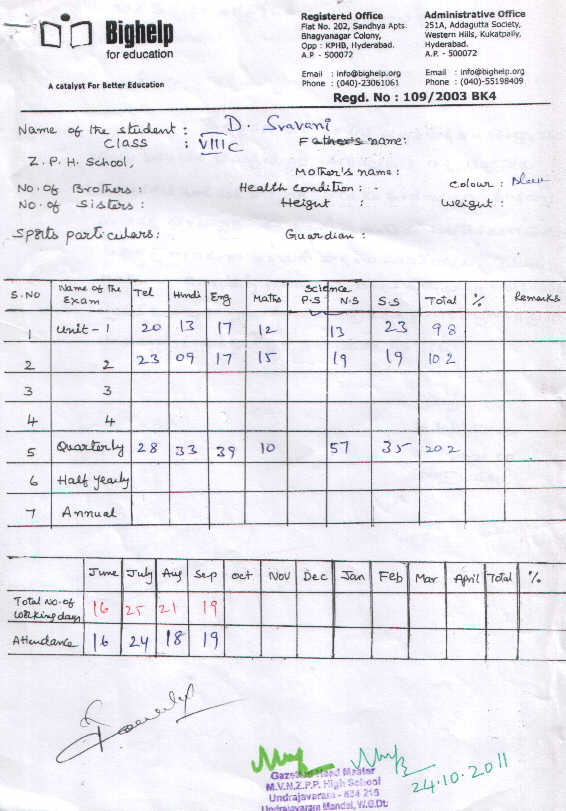 Bighelp
for education
A catalyst For Better Education
Registered Office
Flat No. 202, Sandhya Apts.
Bhagyanagar Colony,
Opp : KPHB, Hyderabad.
A.P. - 500072
Email : info@bighelp.org
Phone : (040)-23061061
Administrative Office
251A, Addagutta Society,
Western Hills, Kukatpally,
Hyderabad.
A.P. - 500072
Email : info@bighelp.org
Phone : (040)-55198409
Regd. No : 109/2003 BK4
Name of the student : D. Sravani
CLASS : VIII C Father's name:
Z. P. H. School,
Mother's name :
No. of Brothers : Health condition : - Colour :
No. of Sisters : Height : Weight :
Sports particulars: Guardian :
S.NO Name of the Exam Tel Hindi Eng Maths Science P.S N.S S.S Total % Remarks
1 Unit - 1 20 13 17 12 13 23 98
2 2 23 09 17 15 19 19 102
3 3
4 4
5 Quarterly 28 33 39 10 57 35 202
6 Half Yearly
7 Annual
June July Aug Sep Oct Nov Dec Jan Feb Mar April Total %
Total No. of working days 16 25 21 19
Attendance 16 24 18 19
24.10.2011
Gazetted Head Master
M.V.N.Z.P.P. High School
Undrajavaram - 534 216
Undrajavaram Mandal, W.G.Dt